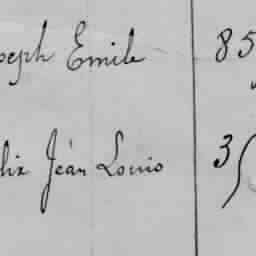 oseph Emile 85
lix Jean Louis 3